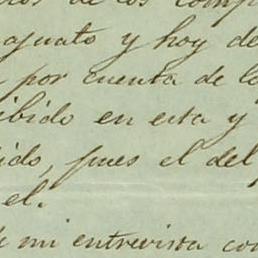 de los comp
aguato y hoy de
por cuenta de lo
ibido en esta y
ido, pues el del
el.
de mi entrevista con